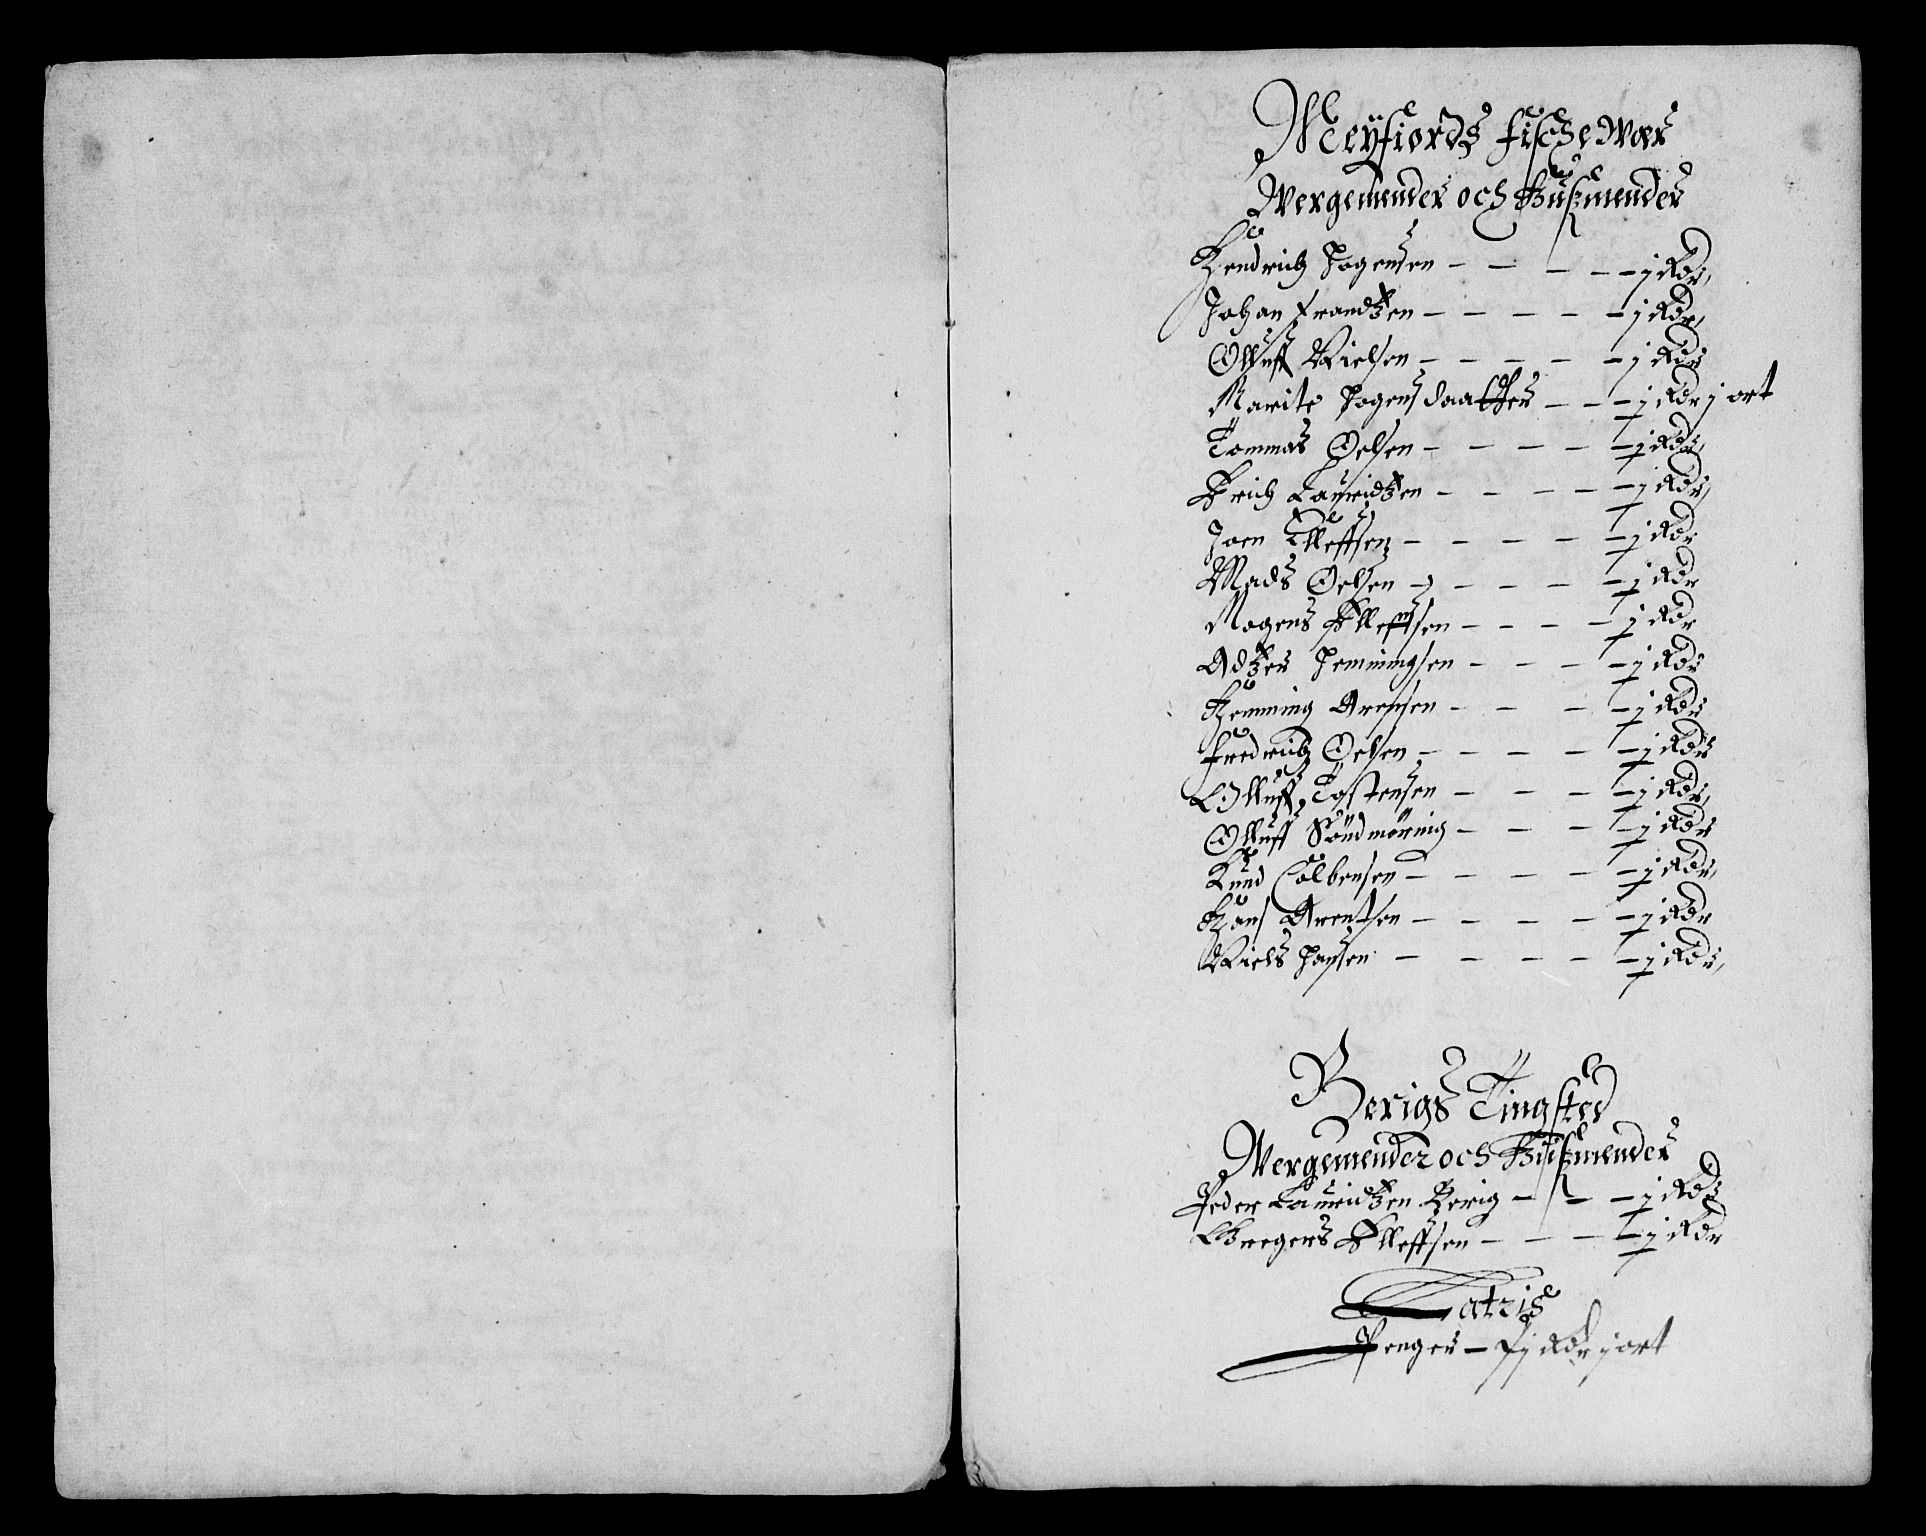 Meÿfiords fische Wær
Wergemender och Bußmender
Hendrich Jogensen - - - - - j Rdr,
Johan Frandtzen - - - - - j Rdr,
Olluff Nielsen - - - - - j Rdr
Marite Jogens daatter - - - j Rdr j ort
Tommas Oelsen - - - - - j Rdr,
Erich Lauridtzen - - - - - j Rdr,
Joen Elleffsen - - - - - j Rdr
Mads Oelsen - - - - - j Rdr
Mogens Elleffsen - - - - j Rdr
Adtzer Hemmingsen - - - - j Rdr
Hemming Arensen - - - - j Rdr
Fredrich Oelsen - - - - - j Rdr
Olluff Tostensen - - - - j Rdr,
Olluff Söndmöring - - - - j Rdr
Knud Colbensen - - - - - j Rdr,
Hans Arentsen - - - - - j Rdr
Niels Hansen - - - - - j Rdr,
Berigs Tingsted
Wergemender och Bußmender
Peder Lauridtzen Berig - - - j Rdr
Gregers Elleffsen - - - - j Rdr
Latris
Penger - Rdr j ort